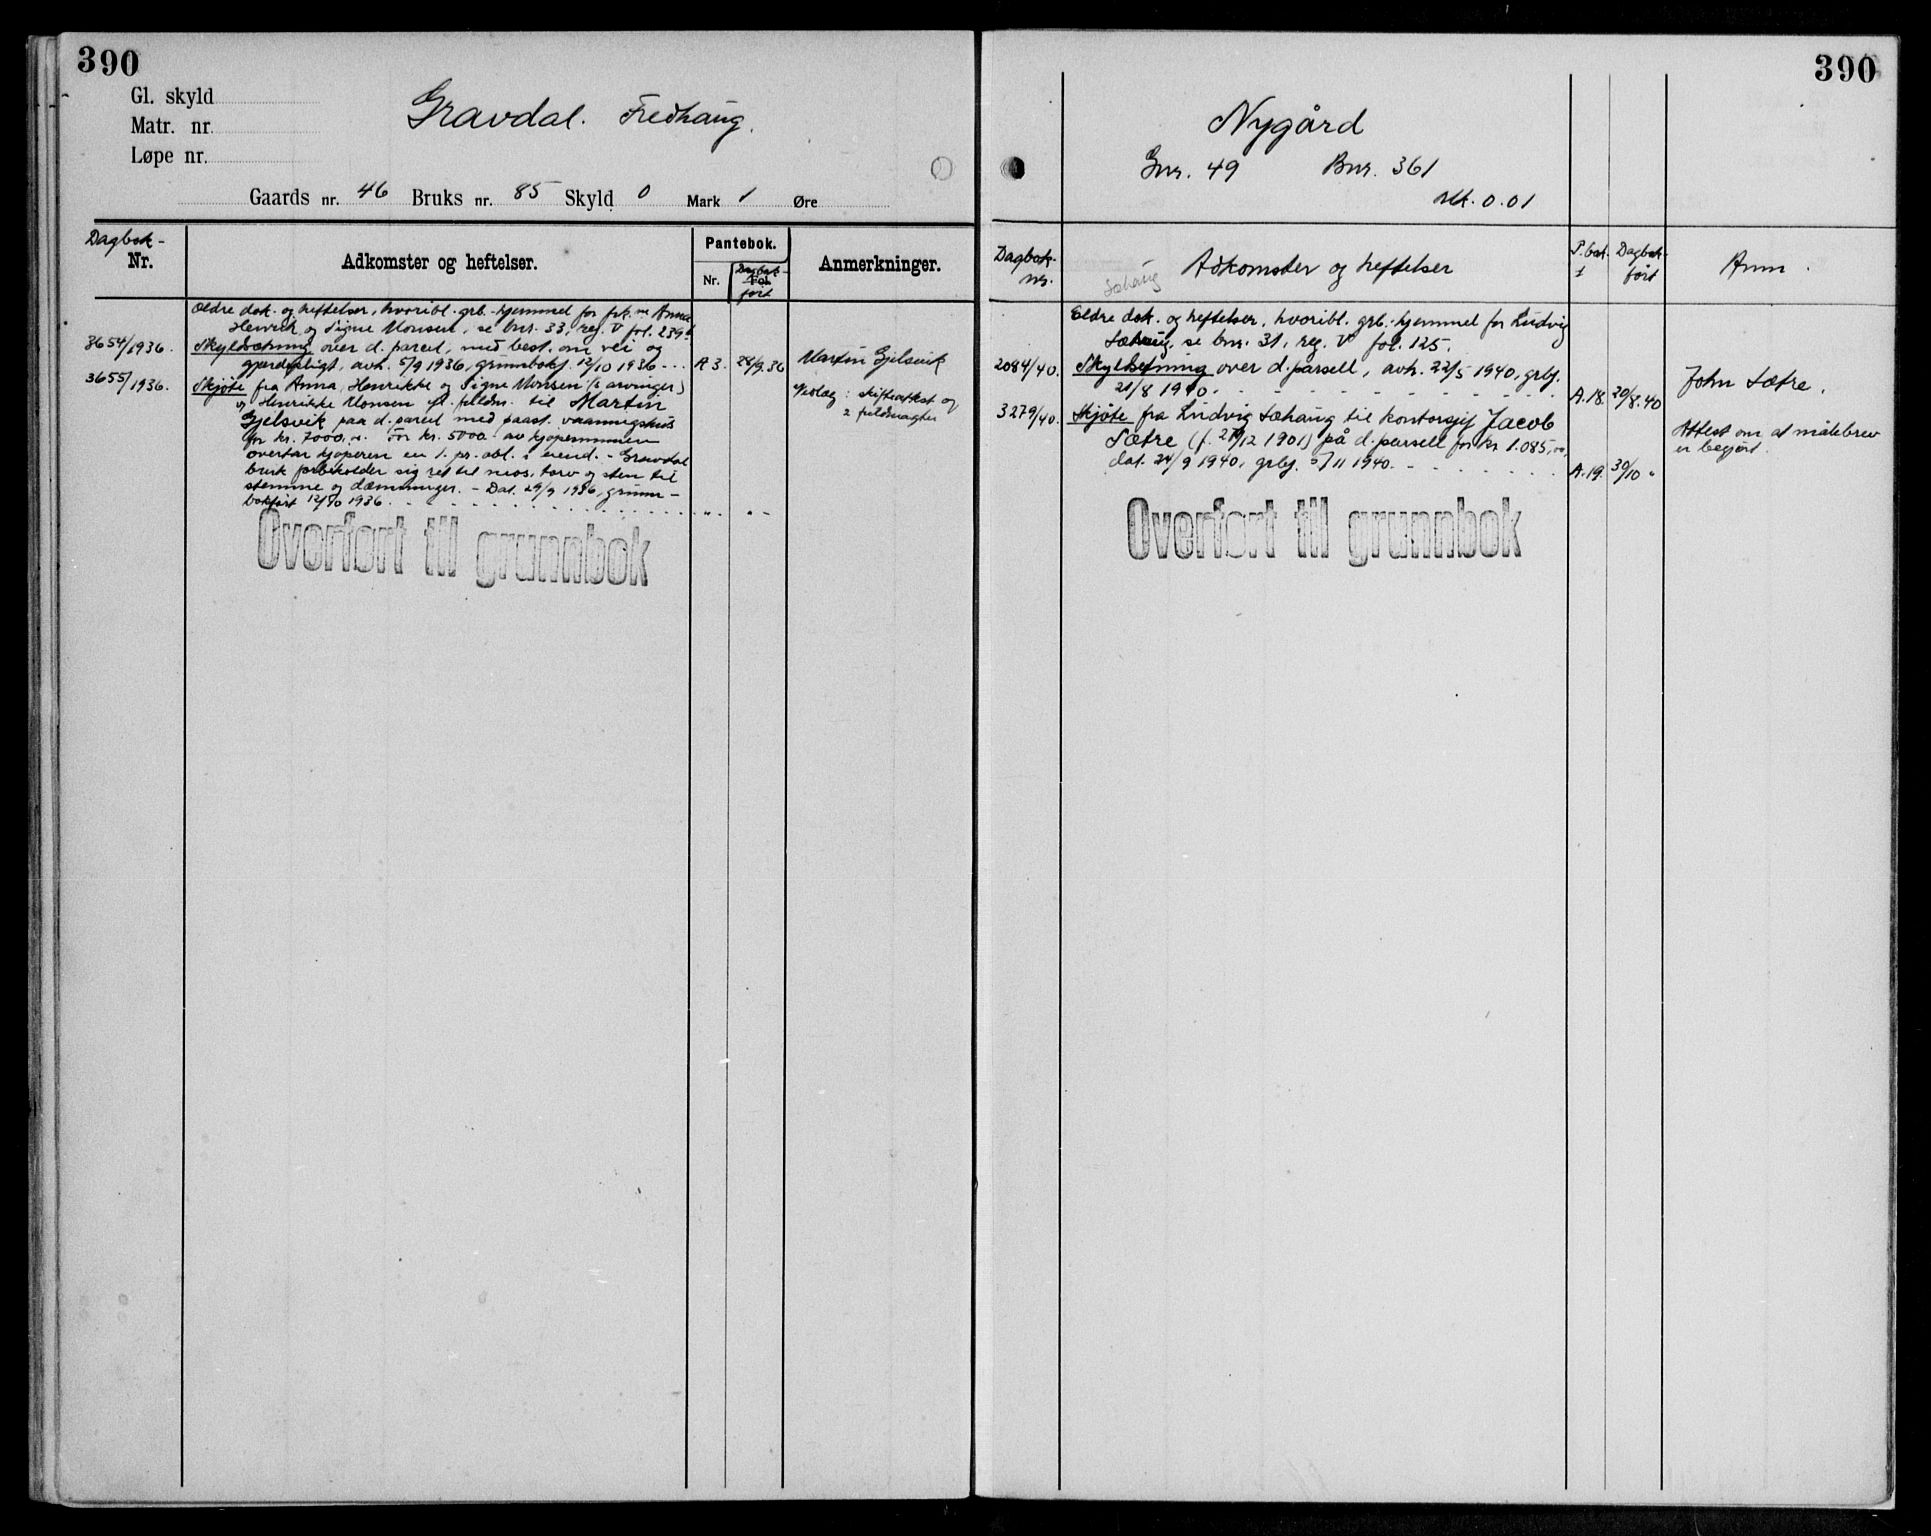 390
Gl. skyld
Matr. nr.
Løpe nr.
Gravdal. Fredhaug.
Gaards nr. 46 Bruks nr. 85 Skyld 0 Mark 1 Øre
Dagbok-
Nr.
Adkomster og heftelser.
Pantebok.
Nr.
Dagbok-
Fol.
ført
Anmerkninger.
Ældre dok. og heftelser, hvoribl. grb. hjemmel for frk.ne Anna
Henrik og Signe Monsen, se bnr. 33, reg. V fol. 239b
3654/1936. Skyldsetning over d. parcel, med best. om vei og
gjerdepligt, avh. 5/9 1936, grunnbokf. 12/10 1936 - . . A 3. 24/9.36 Martin Gjelsvik
3655/1936. Skjøte fra Anna, Henrikke og Signe Monsen (s arvinger)
og Henrikke Monsen fuldm. til Martin
Gjelsvik paa d. parcel med paast. vaaningshus
for kr. 7000,00. For kr. 5000.- av kjøpesummen
overtar kjøperen en 1. pr. obl. i eiend. - Gravdal
bruk forbeholder sig ret til mos, torv og sten til
stemme og dæmninger. - Dat. 29/9 1936, grunn-
bokført 12/10 1936. . . " . " -
Vedlæg: skifteattest og
2 fuldmagter
Overført til grunnbok
390
Nygård
Gnr. 49 Bnr. 361
Mk. 0.01
Dagbok-
nr.
Søhaug
Adkomster og heftelser
P. bok.
Dagbok-
ført
Anm.
Eldre dok. og heftelser, hvoribl. grb. hjemmel for Ludvig
Søhaug, se bnr. 31, reg. V fol. 125.
2084/40. Skyldsetning over d. parsell, avh. 22/5 1940, grbf.
21/8 1940. A.18. 20/8.40 John Sætre.
3279/40. Skjøte fra Ludvig Søhaug til kontorsjef Jacob
Sætre (f. 27/12 1901) på d. parsell for kr 1.085,00.
dat. 24/9 1940, grbf. 5/11 1940. A.19. 30/10 "
Attest om at målebrev
er begjært.
Overført til grunnbok